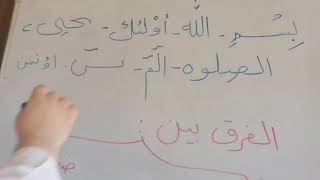 بِسْمِ - اللّه - أوْلئك - يحيى ،
الصلوه - الٓمٓ - سٓ - اؤتمن
الفرق بين
ص